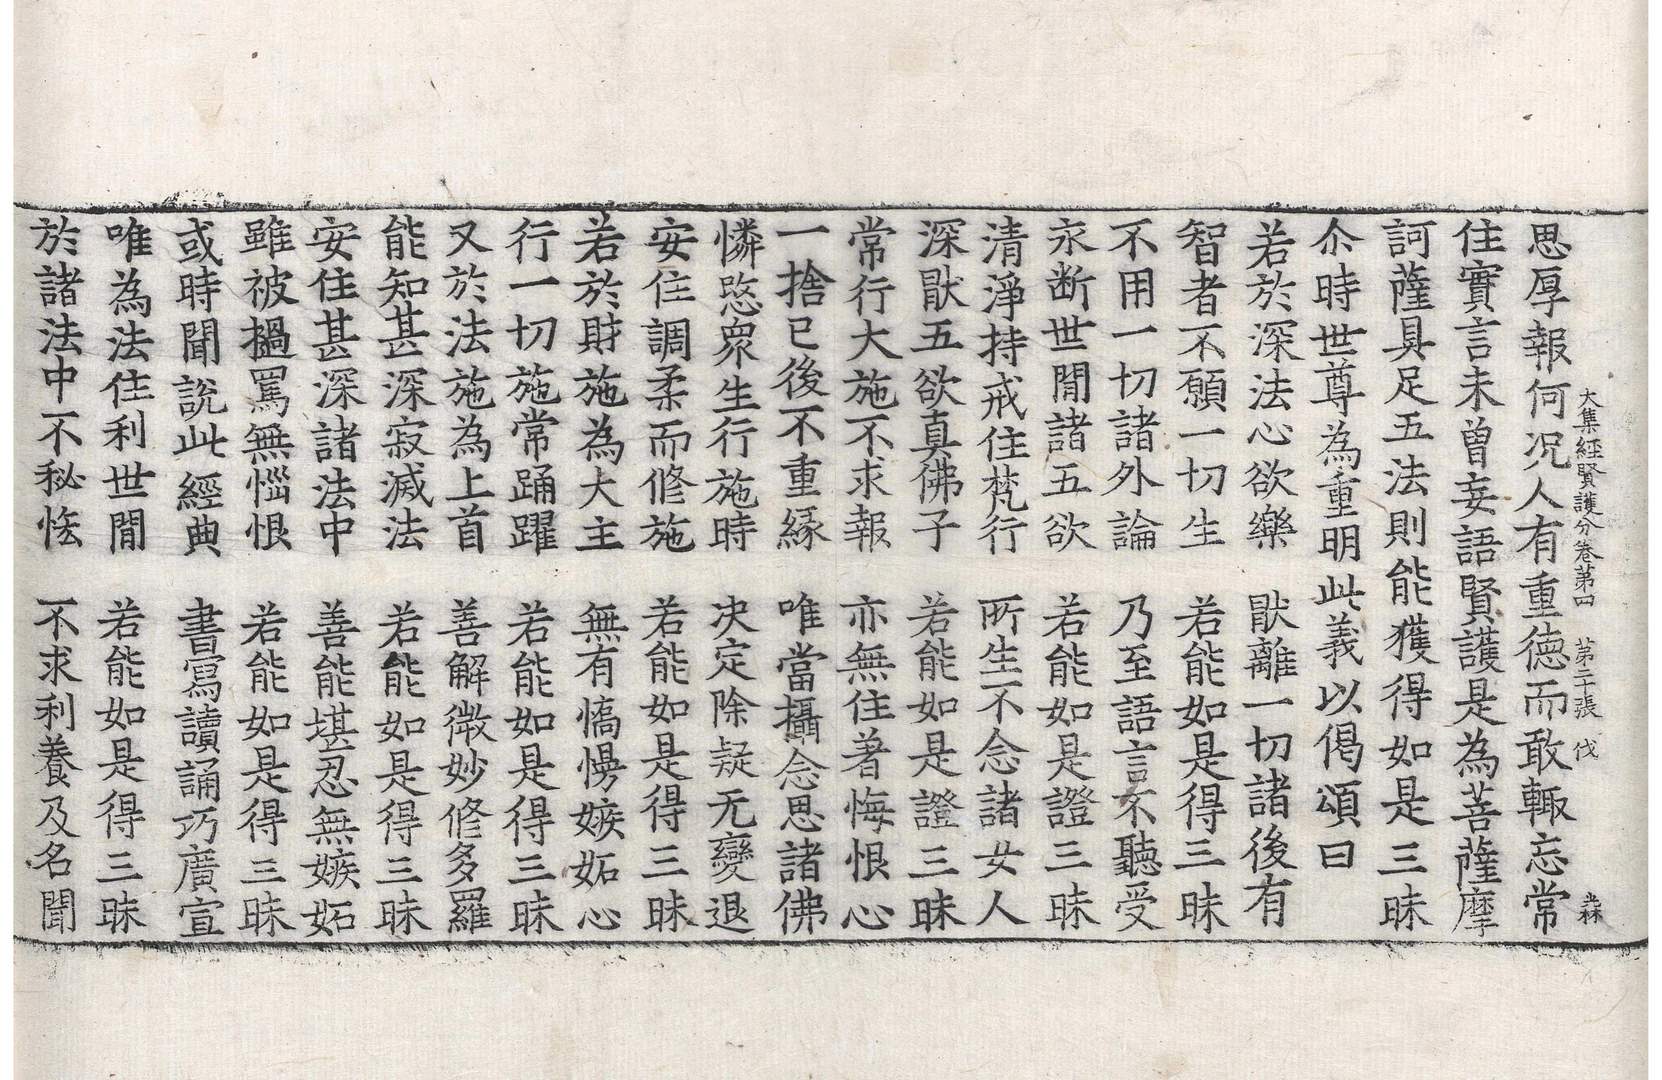 大集經賢護分卷第四 第二十張 伐
思厚報何況人有重德而敢輙忘常
住實言未曾妄語賢護是為菩薩摩
訶薩具足五法則能獲得如是三昧
尒時世尊為重明此義以偈頌曰
若於深法心欲樂 猒離一切諸後有
智者不願一切生 若能如是得三昧
不用一切諸外論 乃至語言不聽受
永断世閒諸五欲 若能如是證三昧
清淨持戒住梵行 所生不念諸女人
深猒五欲真佛子 若能如是證三昧
常行大施不求報 亦無住著悔恨心
一捨已後不重緣 唯當攝念思諸佛
憐愍眾生行施時 决定除疑无變退
安住調柔而修施 若能如是得三昧
若於財施為大主 無有憍慢嫉妬心
行一切施常踊躍 若能如是得三昧
又於法施為上首 善解微妙修多羅
能知甚深寂滅法 若能如是得三昧
安住甚深諸法中 善能堪忍無嫉妬
雖被撾罵無惱恨 若能如是得三昧
或時聞說此經典 書寫讀誦巧廣宣
唯為法住利世閒 若能如是得三昧
於諸法中不秘悋 不求利養及名聞